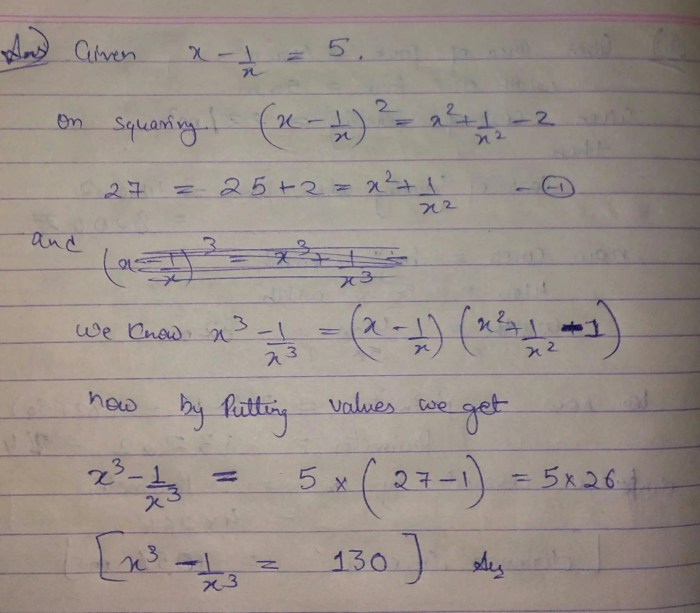 Ans) Given x - 1/x = 5.
on squaring. (x - 1/x)² = x² + 1/x² - 2
27 = 25 + 2 = x² + 1/x² - ①
and (x - 1/x)³ = x³ + 1/x³
we know x³ - 1/x³ = (x - 1/x) (x² + 1/x² - 1)
now by Putting values we get
x³ - 1/x³ = 5 × (27 - 1) = 5 × 26
[x³ - 1/x³ = 130] Ans